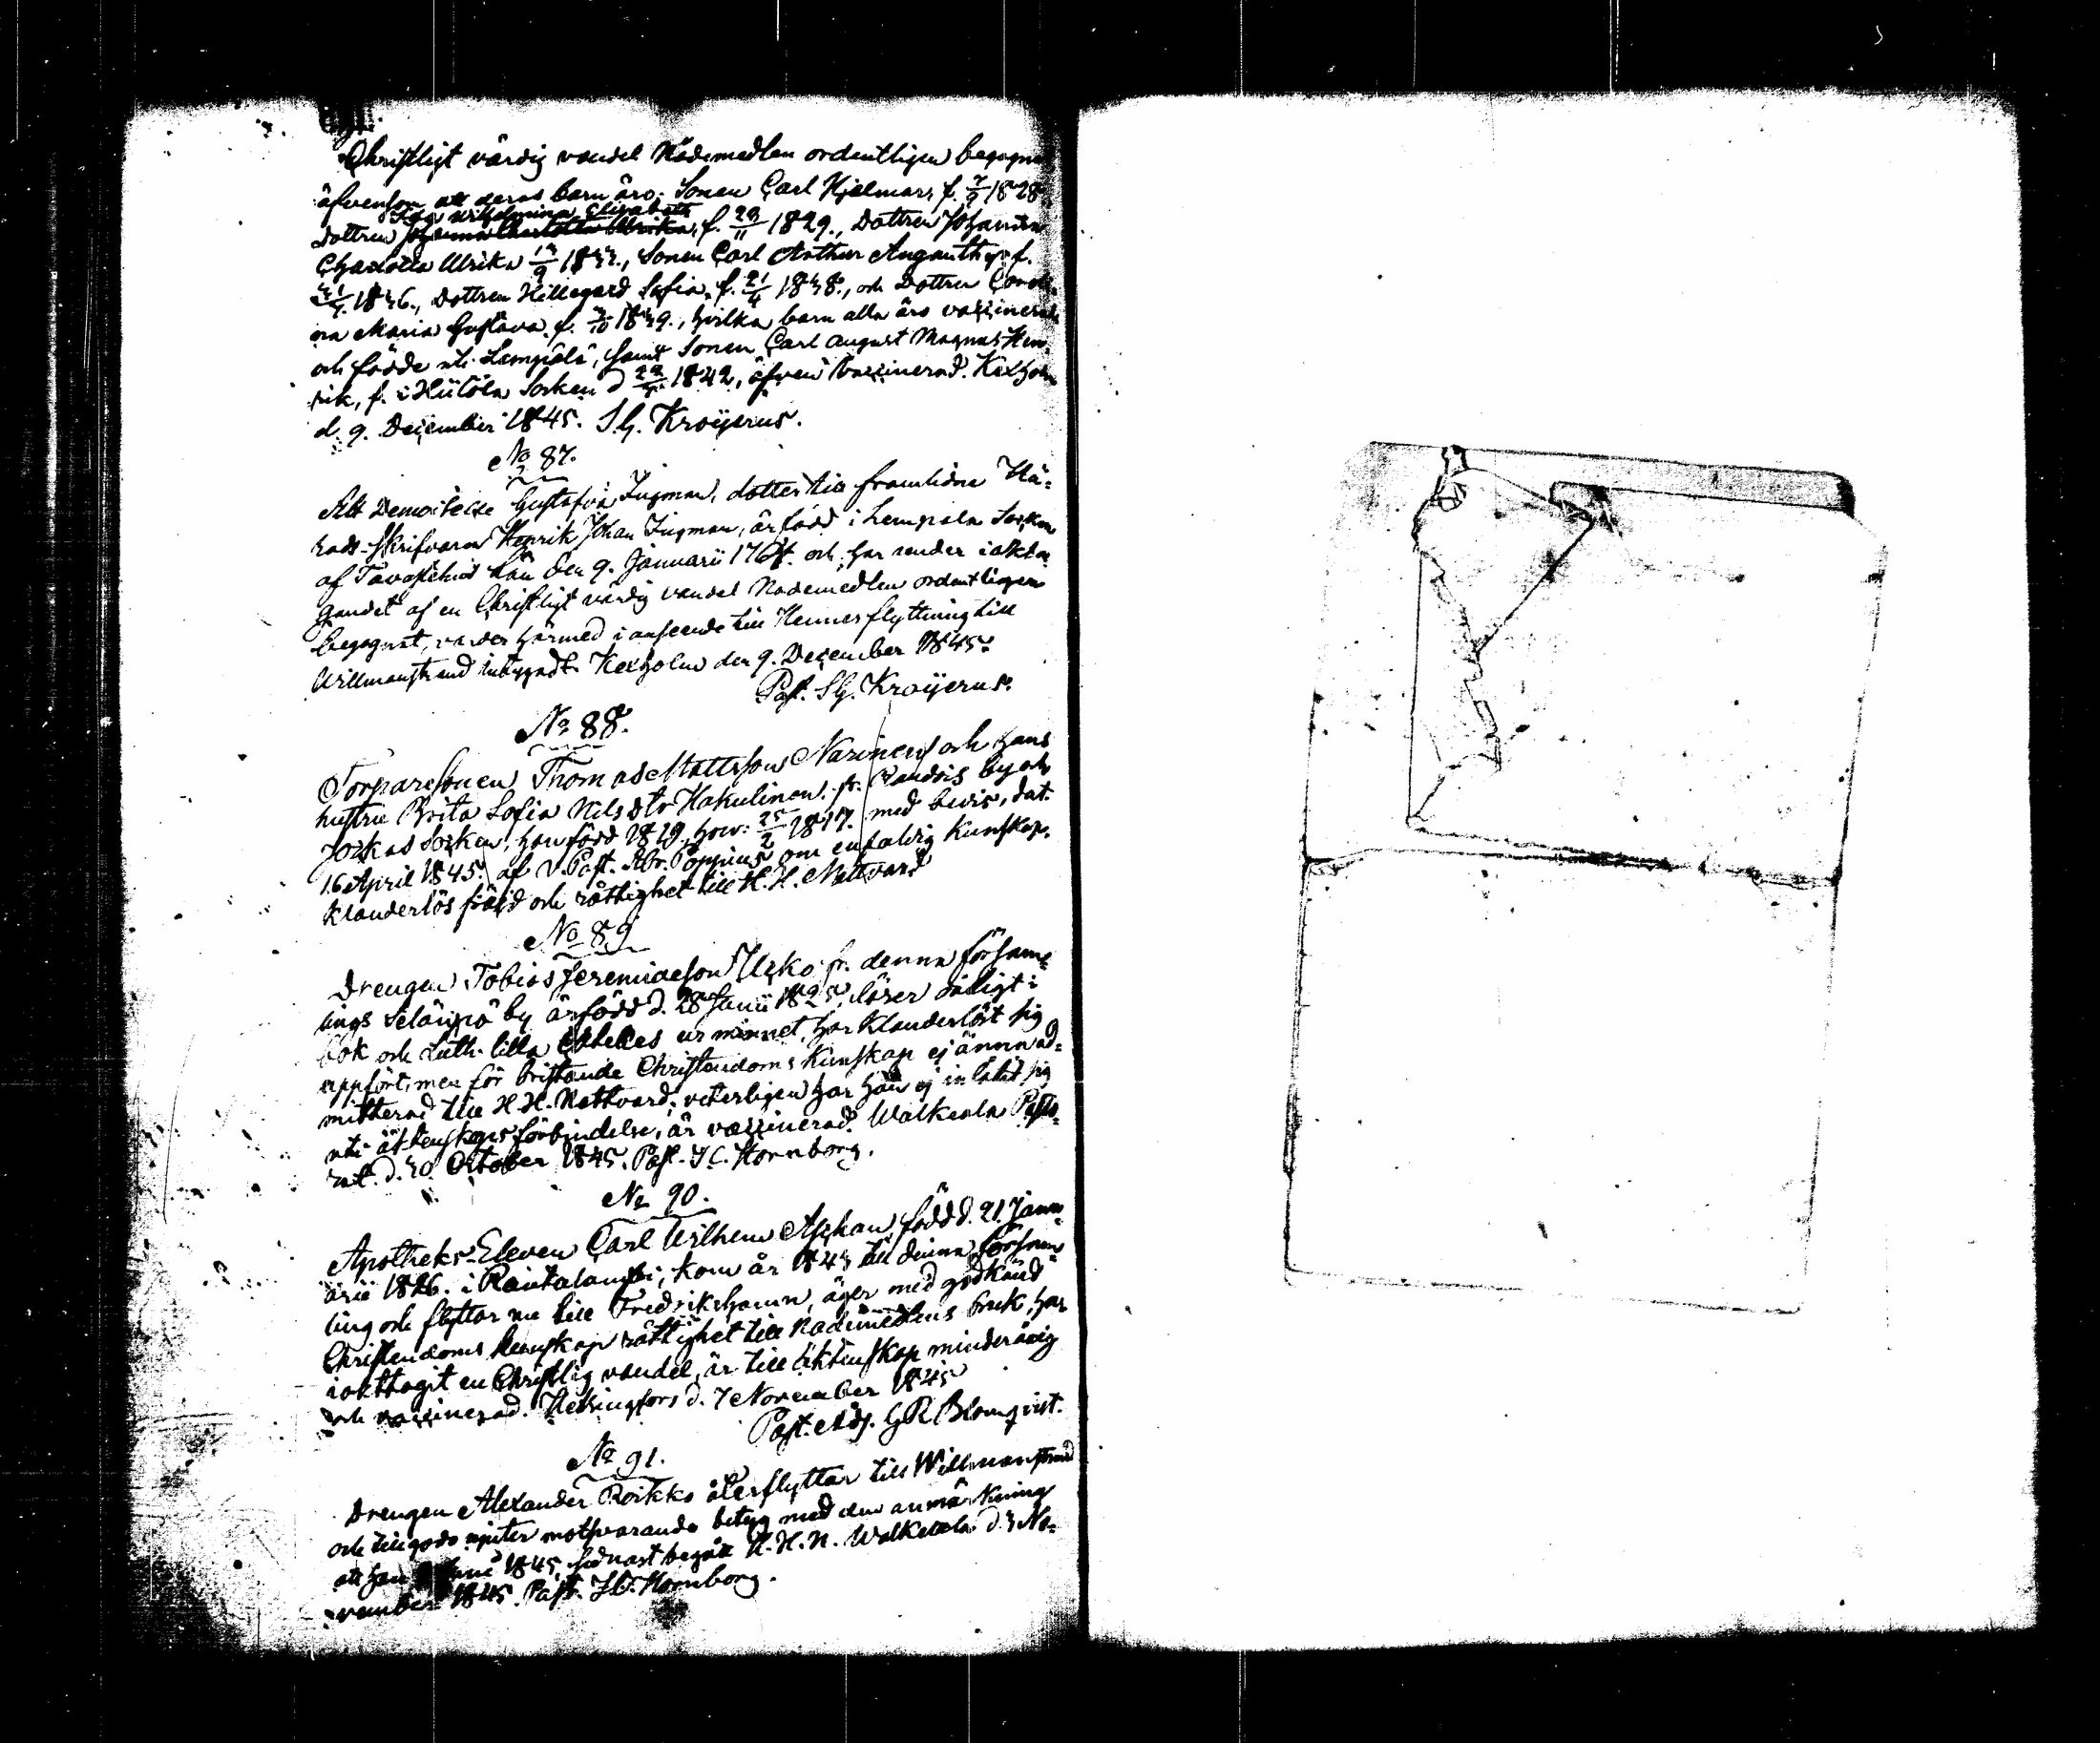 Christligt värdig vandel Nådemedlen ordentligen begagnat
äfvensom att deras barn äro: Sonen Carl Hjelmar, f. 7/9 1828.
Ida Wilhelmina Elisabeth
Dottren Johanna Charlotta Ulrika, f. 29/11 1829., Dottren Johanna
Charlotta Ulrika 13/9 1833., Sonen Carl Arthur f.
1836., Dottren Hillegard Sofia, f. 21/4 1838., och Dottren Caroli-
na Maria Gustava f. 3/10 1839., hvilka barn alla äro vaccinerade
och födde uti Lempäla, samt Sonen Carl August Magnus Hen-
rik, f. i Hiitola Socken d. 1842, äfven vaccinerad. Kexholm
d. 9. December 1845. S.G. Kroijerus.
No 87.
Att Demoiselle Gustafva Ingman, dotter till framlidne Hä-
rads-Skrifvaren Henrik Johan Ingman, är född i Lempala Socken
af Tavastehus Län den 9. Januarii 1764. och har under iaktta-
gandet af en Christligt värdig vandel Nademedlen ordentligen
begagnat, varder härmed i anseende till Hennes flyttning till
Willmanstrand intygadt. Kexholm den 9. December 1845.
Past. S.G. Kroijerus.
No 88.
Torparesonen Thomas Mattsson Narinen och hans
hustru Brita Sofia Nilsdtr Hakulinen fr. by och
Jockas Socken, han född 1819, hon: 25/2 1817. med bevis, dat.
16 April 1845. af V. Past. Abr. Poppius om enfaldig Kunskap,
klanderlös fräjd och rättighet till H. H. Nattvard
No 89
Drengen Tobias Jeremiaeson Ucko fr. denna försam-
lings Selänpä by är född d. 28 Junii 1825, läser dåligt i
bok och Luth. lilla Cateches ur minnet, har klanderlöst sig
uppfört, men för bristande Christendoms Kunskap ej ännu ad-
mitterad till H. H. Nattvard; veterligen har han ej inlåtit sig
uti äktenskapsförbindelse, är vaccinerad. Walkeala Pasto-
rat. d. 30. October 1845. Past. J.C. Hornborg.
No 90.
Apotheks-Eleven Carl Wilhem Aschan, född d. 21. Janu-
arii 1826. i Rautalampi, kom år 1843 till denna försam-
ling och flyttar nu till Fredrikshamn, äger med godkänd
Christendoms kunskap rättighet till Nademedlens bruk, har
iakttagit en Christlig vandel, är till äktenskap minderårig
och vaccinerad. Helsingfors d. 7 November 1845
Past. Adj. G R Blomqvist.
No 91.
Drengen Alexander Roikko återflyttar till Willmanstrand
och tillgodo njuter motsvarande betyg med den anmärkning
att han Junii 1845. sednast begått H. H. N. Walkeala d. 3 No-
vember 1845. Past. J.C. Hornborg.